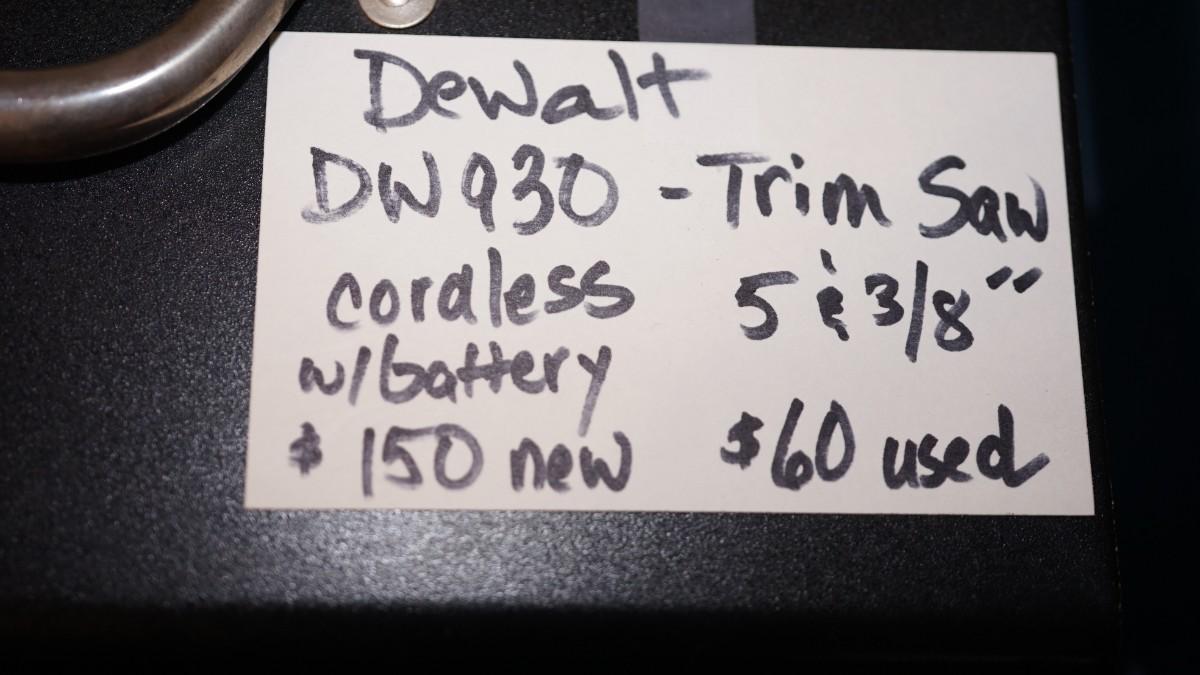 Dewalt
DW930 - Trim Saw
cordless 5 & 3/8"
w/battery
$150 new $60 used